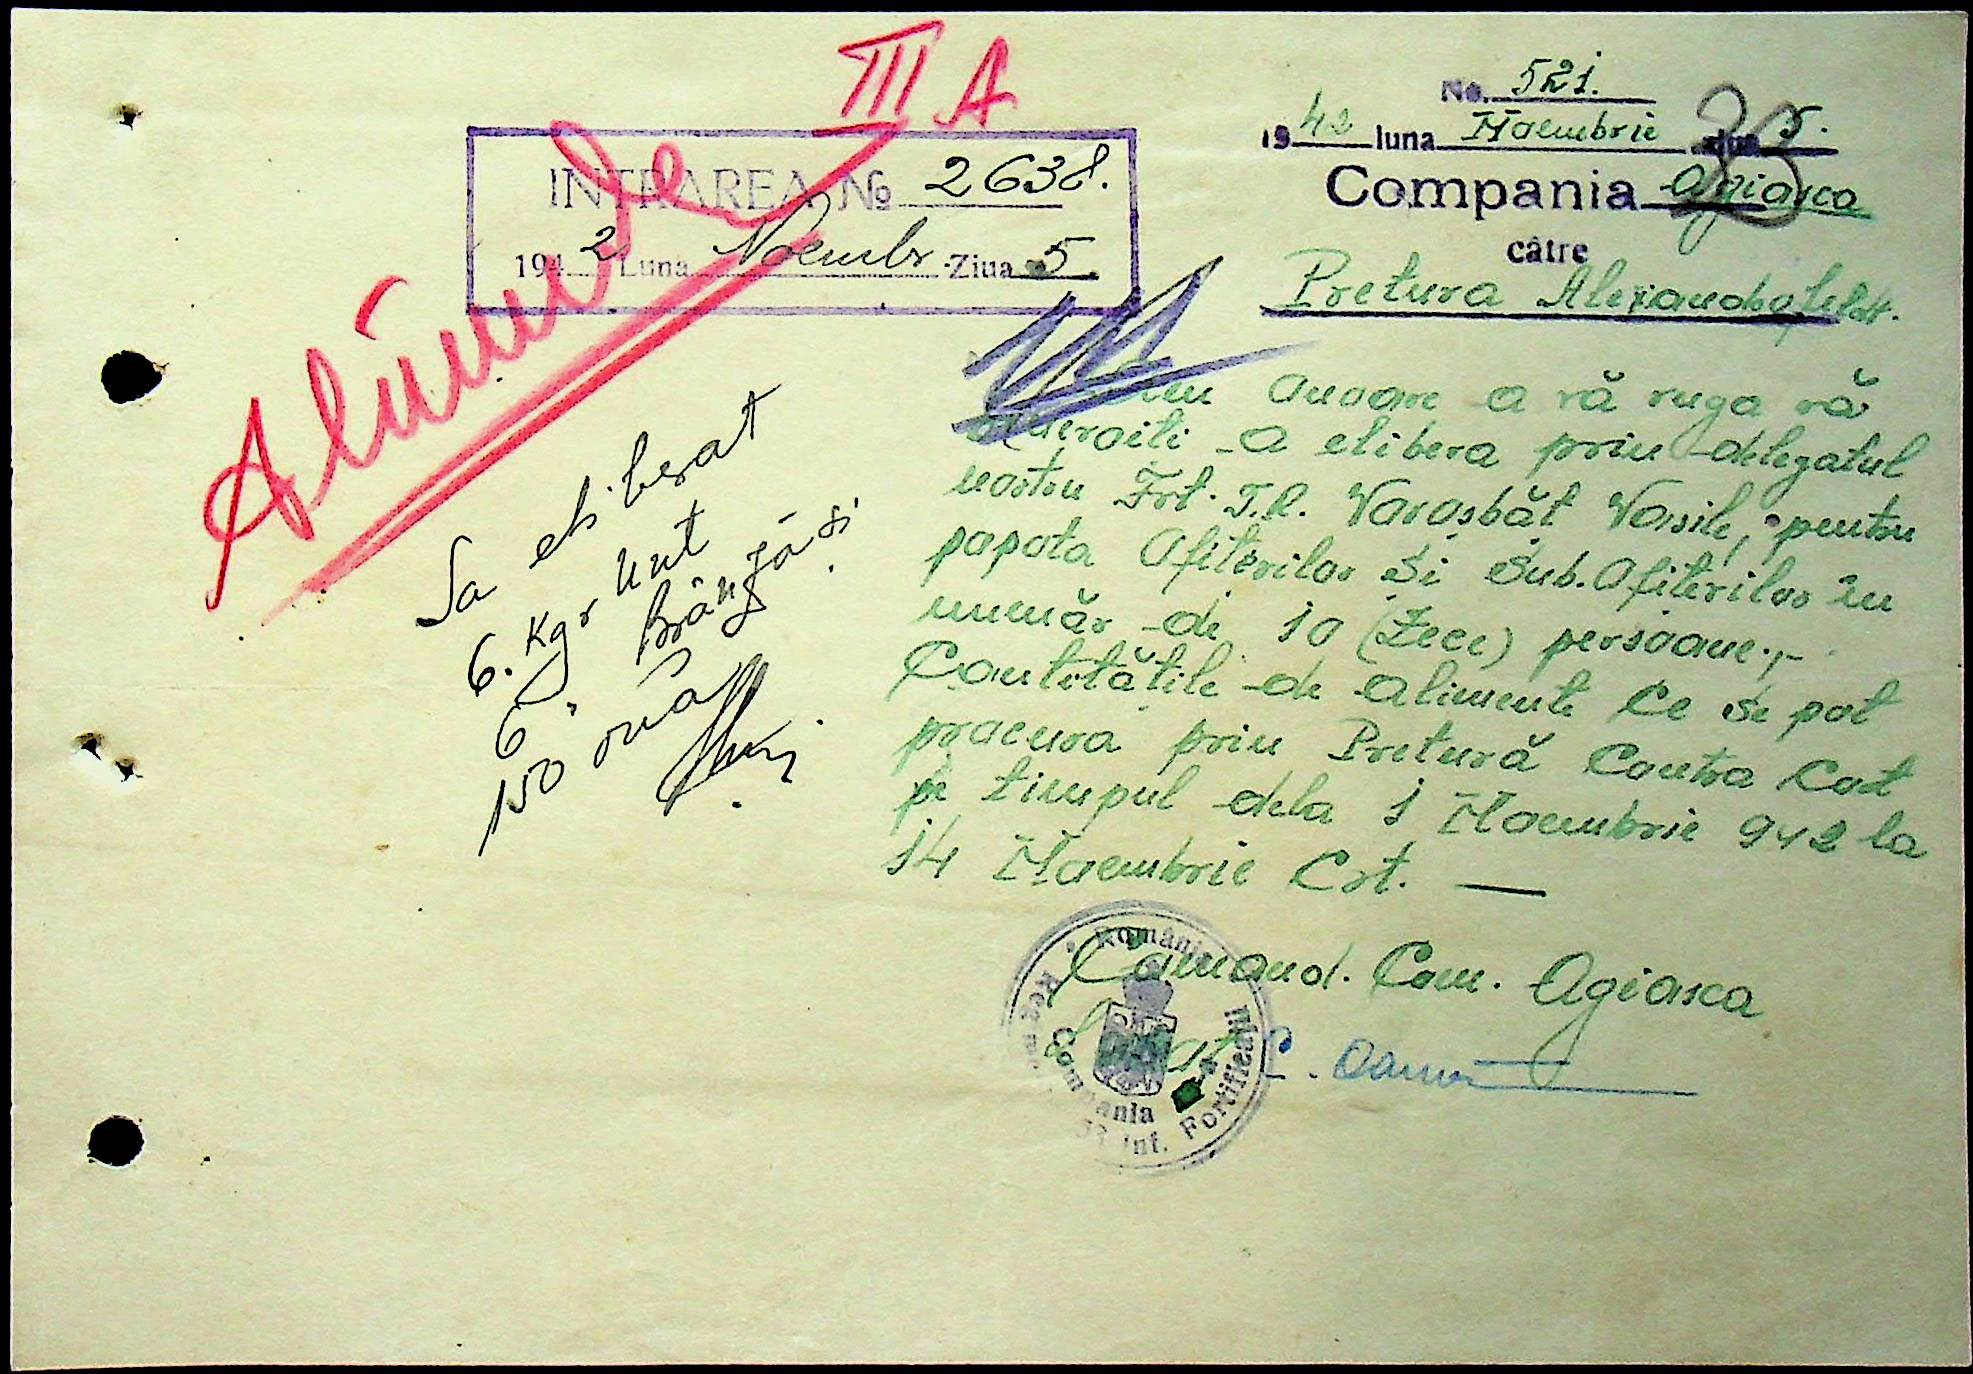 III A
Alimente
INTRAREA № 2638.
1942 Luna Noembr. Ziua 5
No. 521.
1942 luna Noembrie ziua 5.
Compania Agiasca
către
Pretura Alexandrofeld.
onoare a vă ruga să
a elibera prin delegatul
nostru Frt. T.R. Varasbăt Vasile, pentru
popota Ofițerilor și Sub.Ofițerilor în
număr de 10 (Zece) persoane.,-
Cantitățile de alimente ce se pot
procura prin Pretură Contra Cost
pe timpul dela 1 Noembrie 942 la
14 Noembrie Crt. —
Sa eliberat
6. Kgr Unt
6 " Brânză și
150 ouă
Comand. Com. Agiasca
C.
România
Compania
Inf. Fortificații